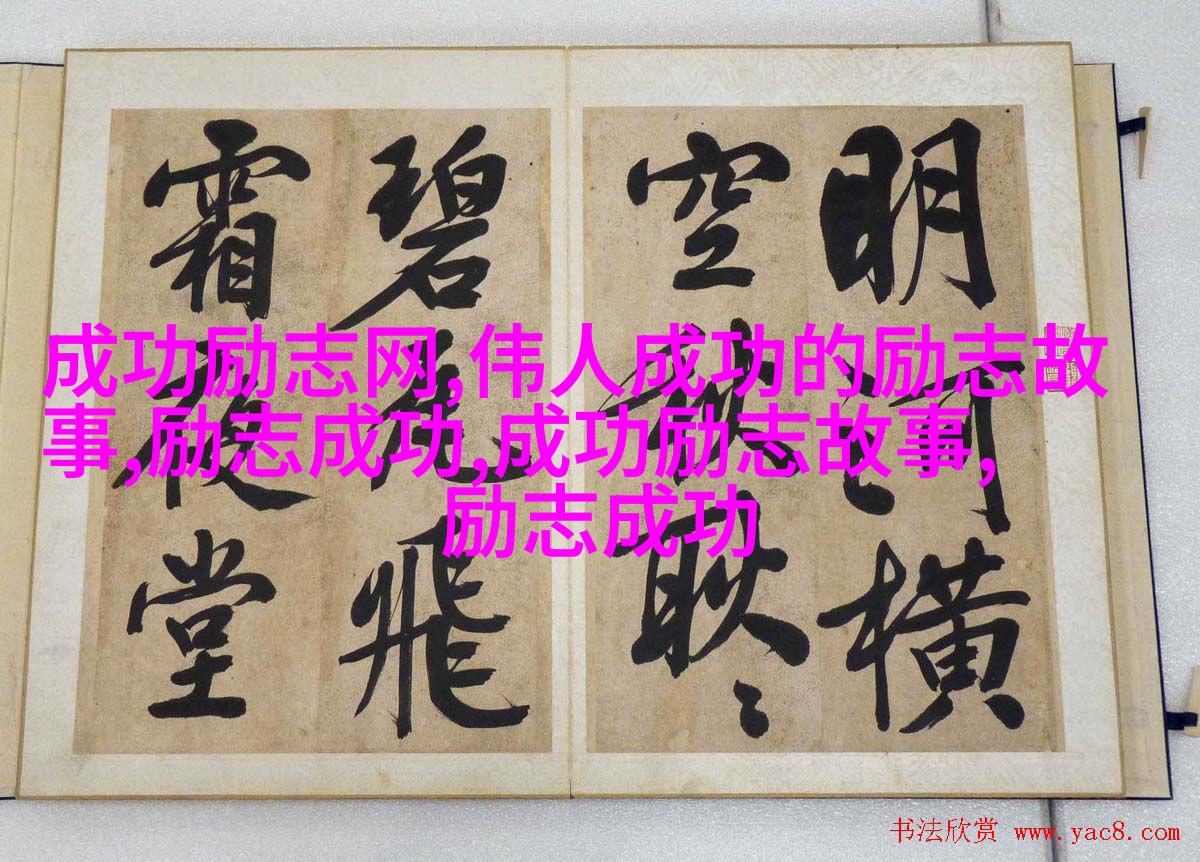 明河橫
空秋耿〻
碧瓦飛
霜夜堂
成功励志网,伟人成功的励志故
事,励志成功,成功励志故事,
励志成功
书法欣赏 www.yac8.com